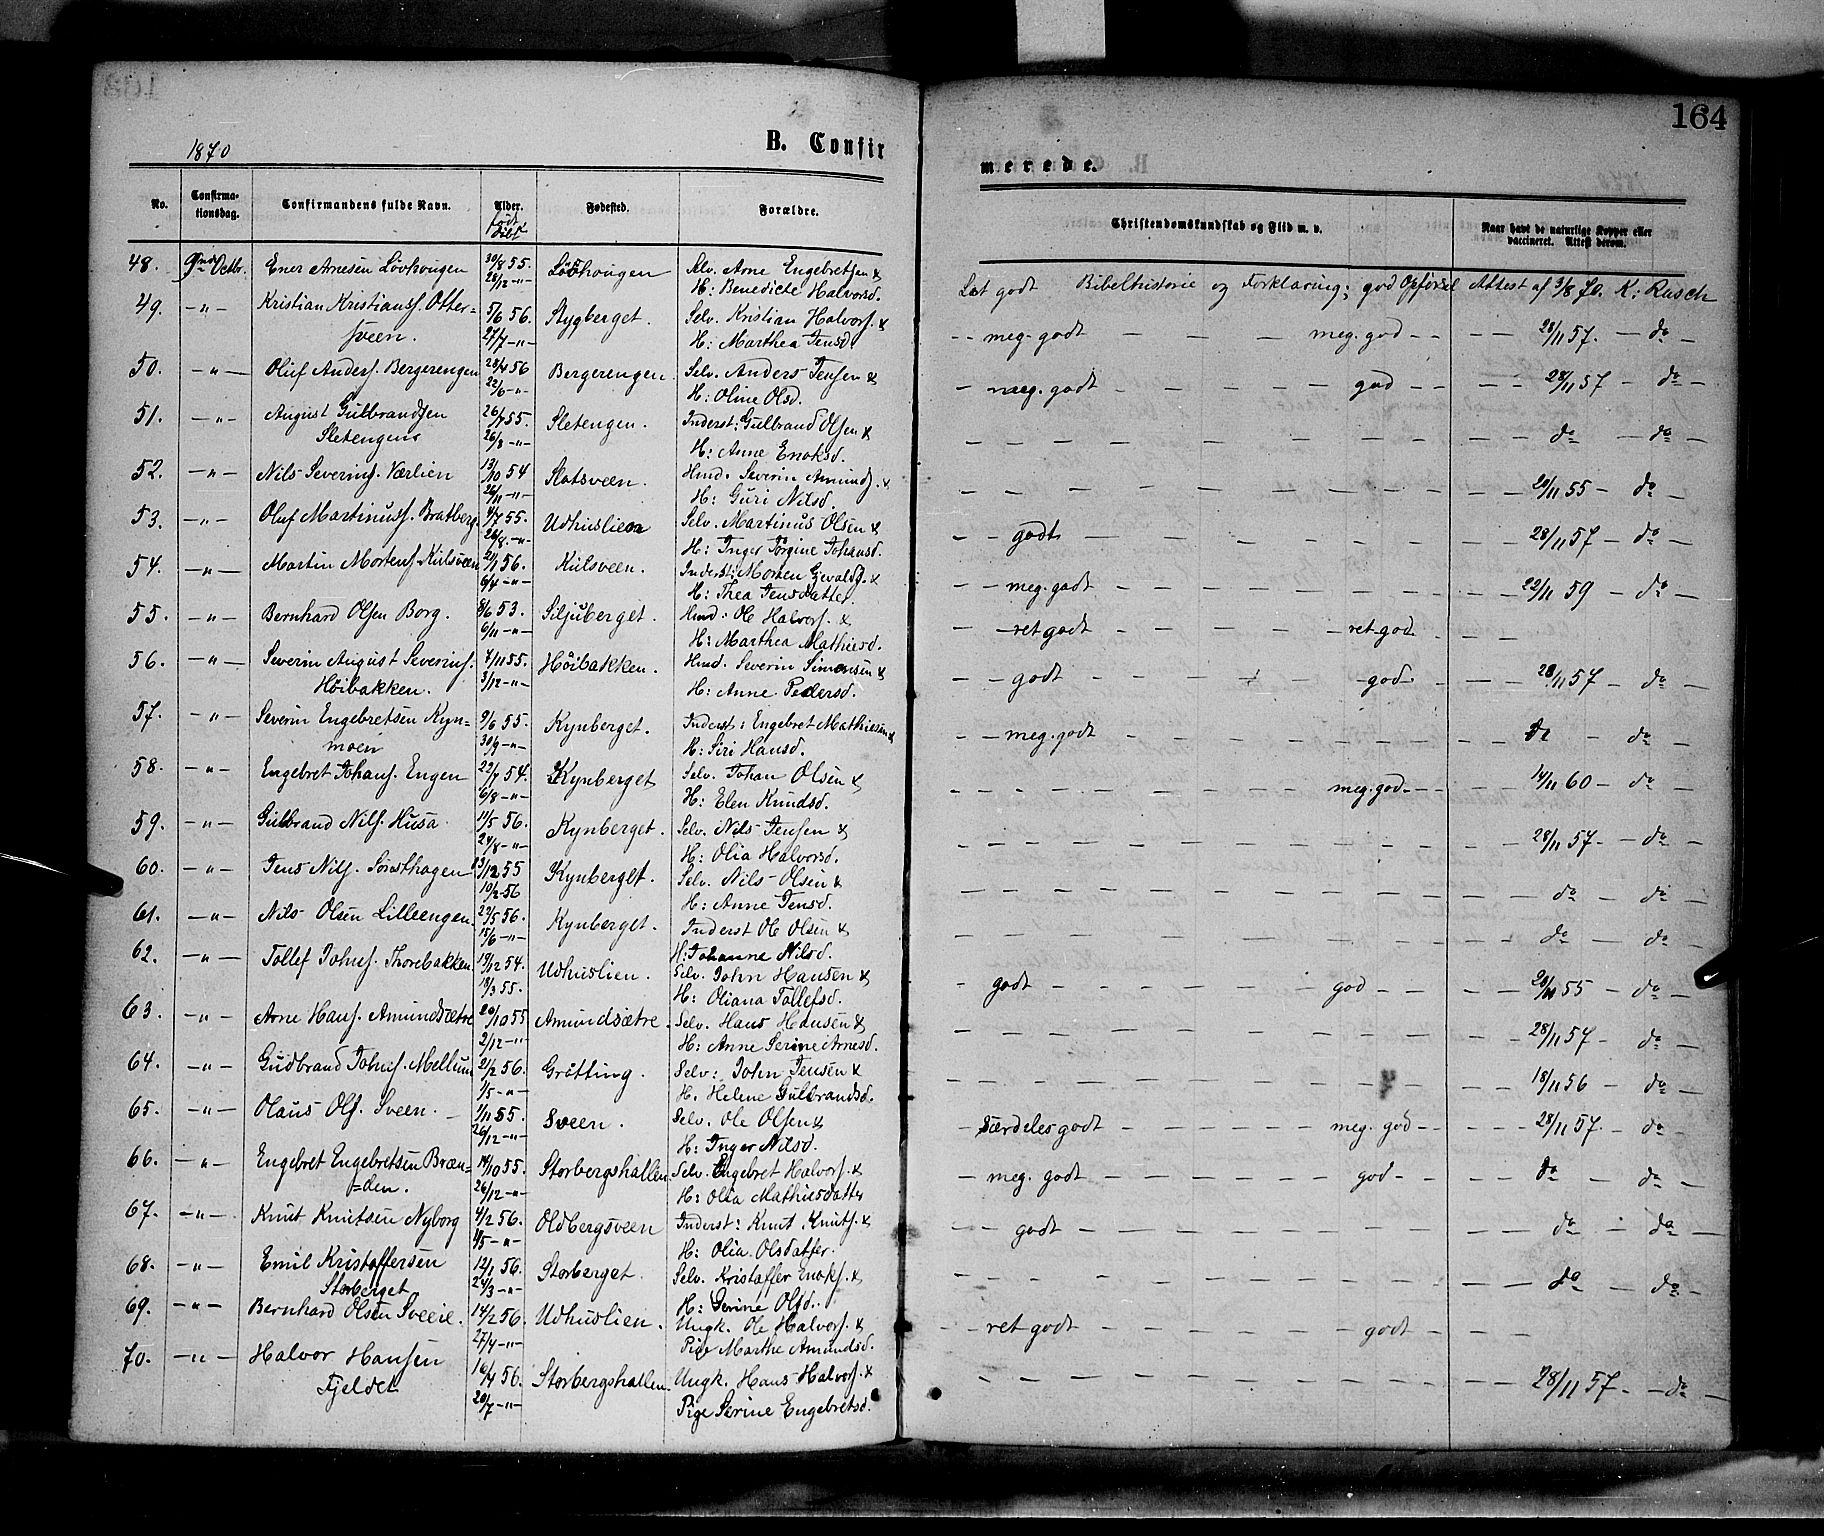 164
1870
B. Confir
merede.
No.
Confirma-
tionsdag.
Confirmandens fulde Navn.
Alder.
født
døbt
Fødested.
Forældre.
Christendomskundskab og Flid m. v.
Naar havt de naturlige Kopper eller
vaccineret. Attest derom.
48. 9de Octbr. Ener Arnesen Lövhougen 30/8 55. Lövhougen Selv. Arne Engebretsen &
28/12 -"- H: Benedicte Halvorsd.
Lat godt Bibelhistorie og Forklaring; god Opførsel Attest af 3/8 70. K: Rasch
49. -"- Kristian Kristians. Otter- 5/6 56. Stygberget. Selv. Kristian Halvors. &
sveen. 27/7 -"- H: Marthea Jensd.
-- meg. godt — — — meg. god -- — — 28/11 57. — do
50. -"- Oluf Anders. Bergerengen 28/4 56 Bergerengen. Selv. Anders Jensen &
22/6 -"- H: Oline Olsd.
— meg. godt — — — god -- — — 28/11 57 — do —
51. -"- August Gulbrandsen 26/7 55. Sletengen. Inderst: Gulbrand Olsen &
Sletengens 26/8 -"- H: Anne Enoksd.
— — — — do — do —
52. -"- Nils Severins. Værlien 13/10 54 Slatsveen. Hmd. Severin Amunds. &
26/11 -"- H: Guri Nilsd.
— — — — 20/11 55 — do —
53. -"- Oluf Martinuss. Bratberg. 4/7 55. Udhuslien Selv. Martinus Olsen &
26/8. -"- H: Inger Jørgine Johansd.
— — godt — — — 28/11 57 — do —
54. -"- Martin Mortens. Kulsveen 21/1 56. Kulsveen. Inderst: Morten Gevalds. &
6/4 -"- H: Thea Jensdatter.
— — meg. godt — — — 22/11 59 — do —
55. -"- Bernhard Olsen Borg. 8/6 53. Siljuberget. Hmd: Ole Halvors. &
6/11 -"- H: Marthea Mathiesd.
— — ret godt — — — ret god — — —
56. -"- Severin August Severins. 4/11 55. Høibakken. Hmd. Severin Simonsen &
Høibakken. 3/12 -"- H: Anne Pedersd.
— — godt — — — god — — — 28/11 57 — do —
57. -"- Severin Engebretsen Kyn= 9/6 55. Kynberget. Inderst: Engebret Mathiesen &
moen 30/9 -"- H: Siri Hansd.
— — meg. godt — — — do — do —
58. -"- Engebret Johans. Engen 22/7 54. Kynberget Selv. Johan Olsen &
6/8 -"- H: Elen Knudsd.
— — — — meg. god — — 14/11 60 — do
59. -"- Gulbrand Nils. Husa. 11/5 56. Kynberget. Selv. Nils Jensen &
24/8 -"- H: Olia Halvorsd.
— — — — 28/11 57. — do —
60. -"- Jens Nils. Sørsthagen 13/12 55 Kynberget. Selv. Nils Olsen &
10/2 56 H: Anne Jensd.
— — — — do — do —
61. -"- Nils Olsen Lilleengen. 22/5 56. Kynberget. Inderst Ole Olsen &
15/6 -"- H: Johanne Nilsd.
— — — — do — do —
62. -"- Tollef Johns. Thorebakken 19/12 54. Udhuslien. Selv. John Hansen &
18/3 55. H: Oliana Tollefsd.
— godt — — — god — — — 20/11 55 — do —
63. -"- Arne Hans. Amundsætre 20/10 55 Amundsætre. Selv. Hans Hansen &
2/12 -"- H: Anne Serine Arnesd.
— — — — 28/11 57 — do —
64. -"- Gudbrand Johns. Mellum 21/2 56. Grøtting. Selv: John Jensen &
1/5 -"- H. Helene Gulbrandsd.
— — — — 18/11 56 — do —
65. -"- Olaus Ols. Sveen. — 1/11 55. Sveen. Selv. Ole Olsen &
26/12 -"- H: Inger Nilsd.
— Særdeles godt — — — meg. god — — 28/11 57. — do
66. -"- Engebret Engebretsen Bræn= 14/10 55. Storbergshallen Selv. Engebret Halvors. &
=den. 26/12 -"- H: Olia Mathiesdatter
— meg. godt — — — god — — — do — do —
67. -"- Knut Knutsen Nyborg 4/2 56. Oldbergsveen Inderst: Knut Knuts. &
4/5 -"- H: Olia Olsdatter.
— — godt — — — do — do —
68. -"- Emil Kristoffersen 12/1 56. Storberget. Selv. Kristoffer Enoks. &
Storberget 24/3 -"- H: Serine Olsd.
— — — — do — do —
69. -"- Bernhard Olsen Sveeie. 14/2 56. Udhuslien. Ungk. Ole Halvors. &
27/4 -"- Pige Marthe Amundsd.
— ret godt — — — godt — — —
70. -"- Halvor Hansen 16/4 56. Storbergshallen. Ungk. Hans Halvors. &
Fjeldet 20/7 -"- Pige Serine Engebretsd.
— — — — 28/11 57. — do —